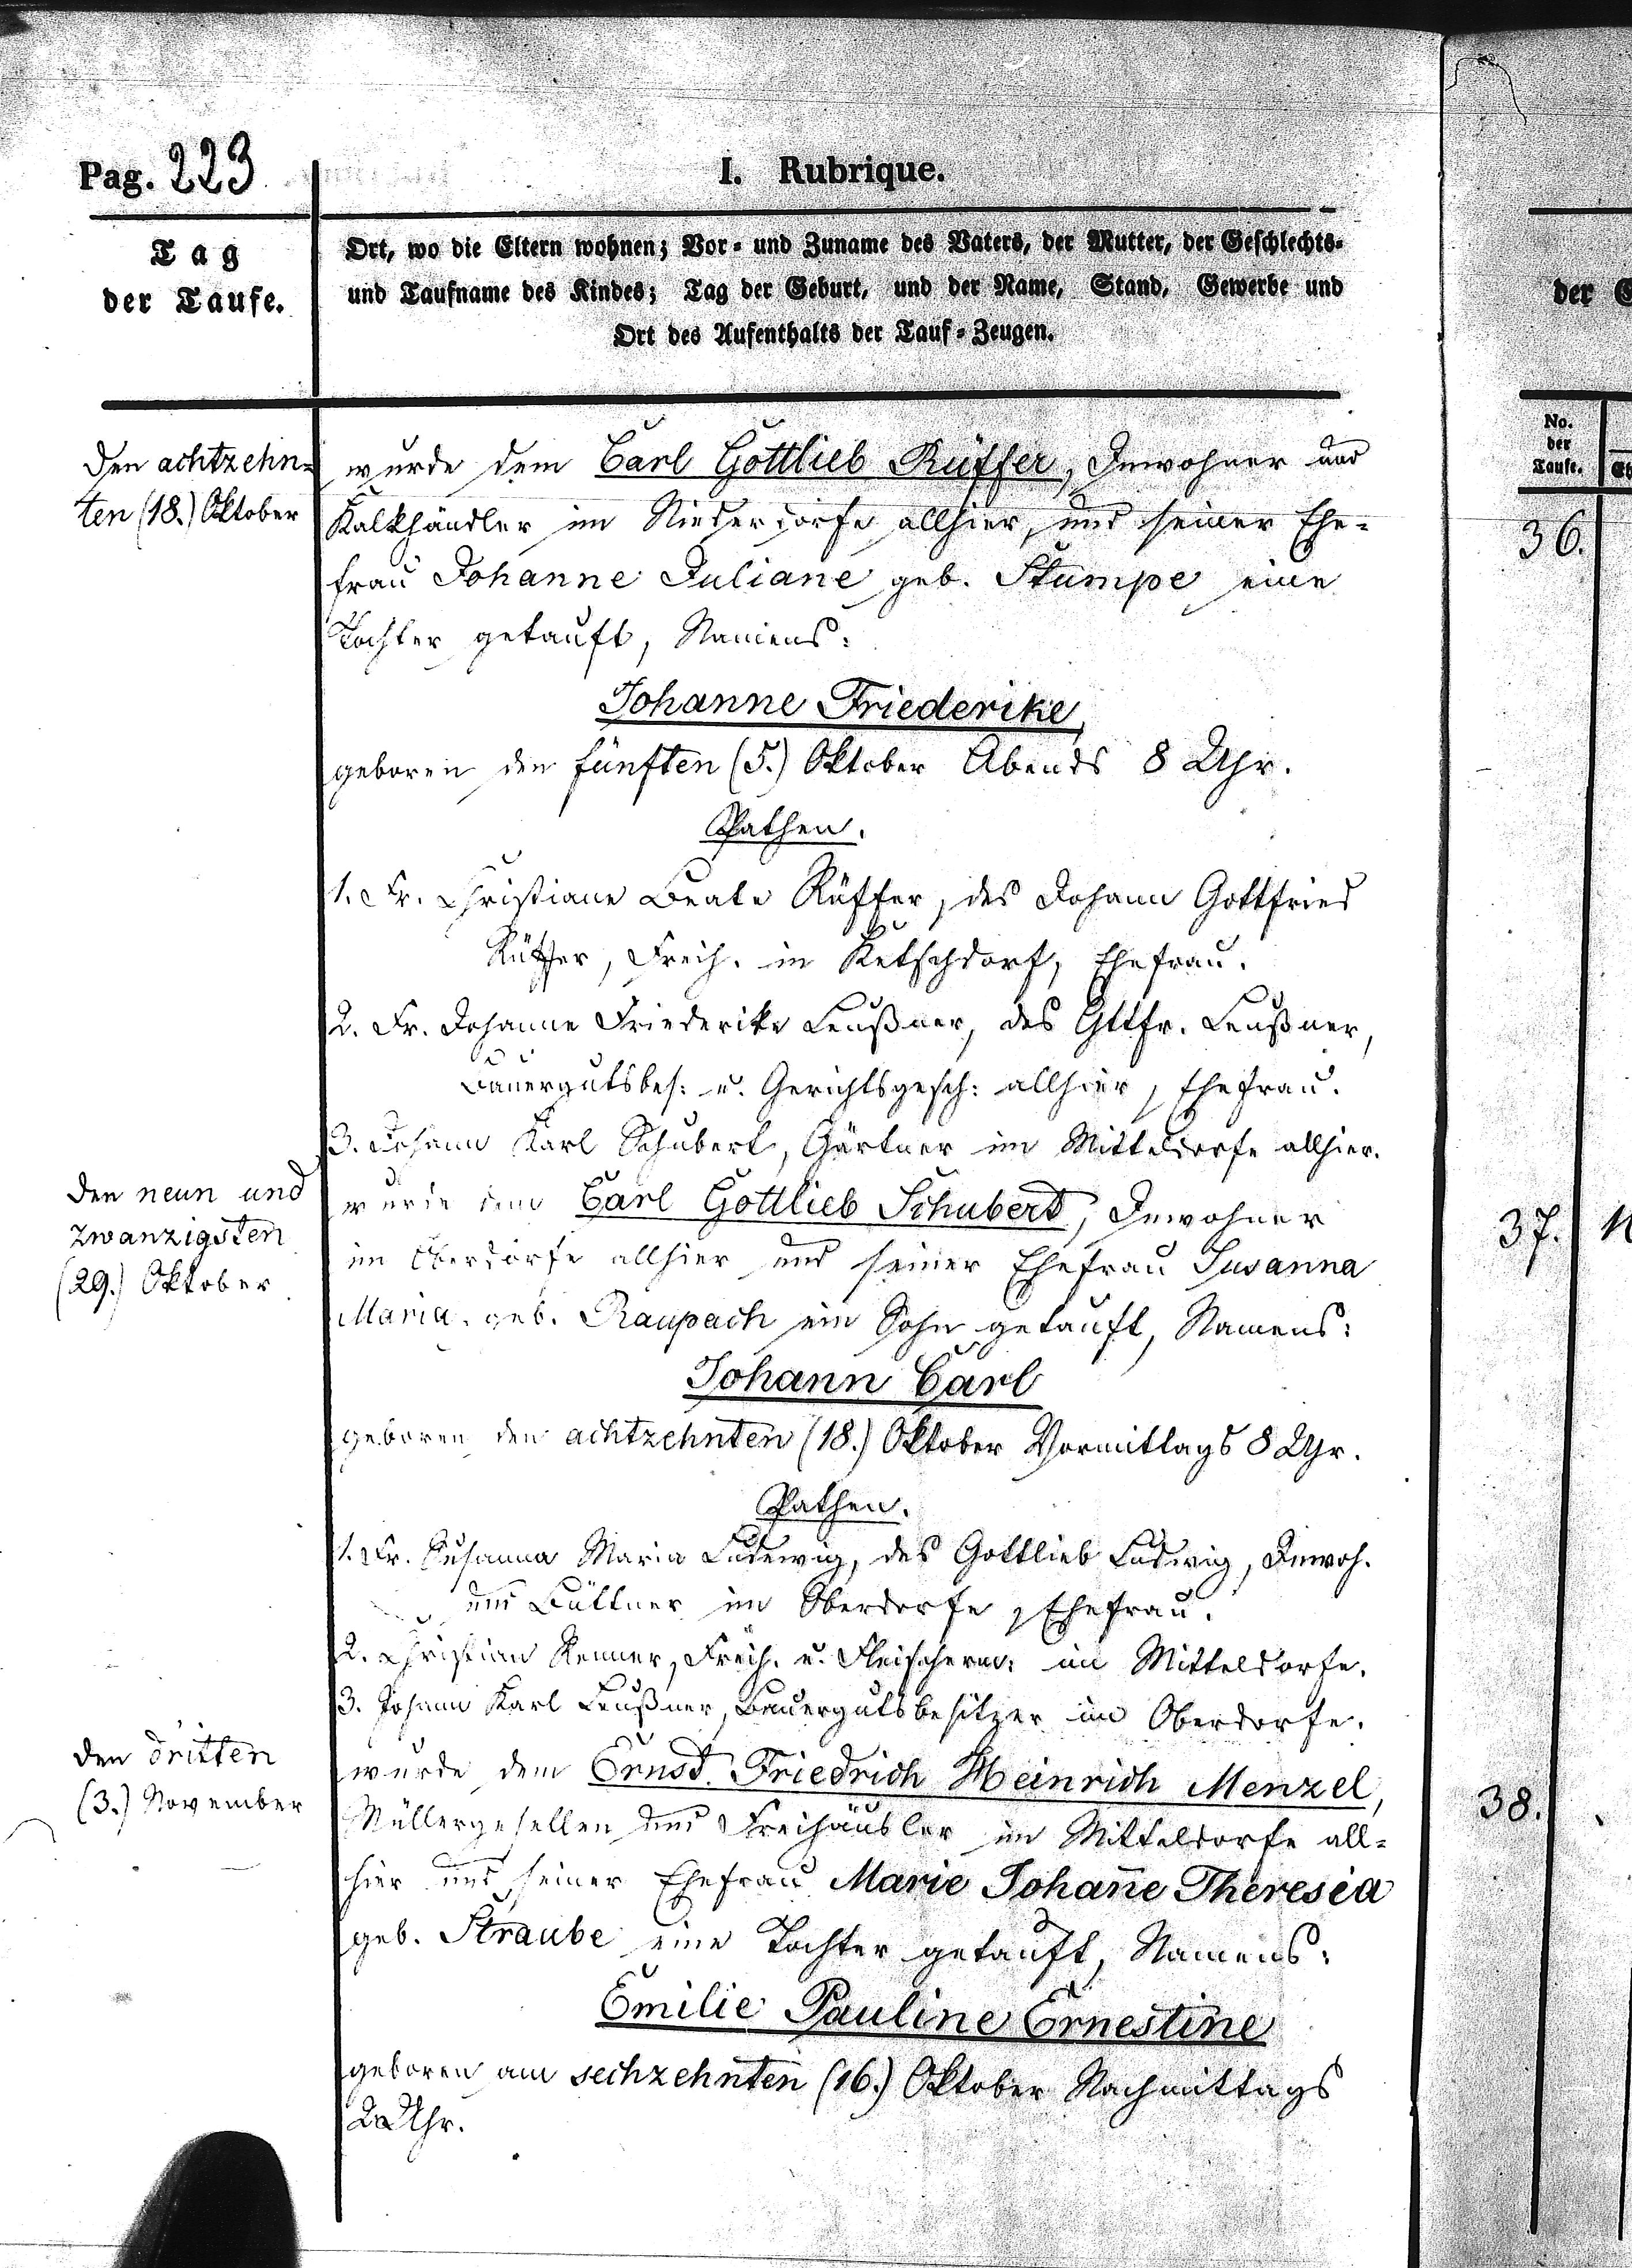 Pag. 223
I. Rubrique.
Tag
der Taufe.
Ort, wo die Eltern wohnen; Vor- und Zuname des Vaters, der Mutter, der Geschlechts-
und Taufname des Kindes; Tag der Geburt, und der Name, Stand, Gewerbe und
Ort des Aufenthalts der Tauf-Zeugen.
Den achtzehn-
ten (18.) Oktober
wurde dem Carl Gottlieb Rüffer, Inwohner und
Kalkhändler im Niederdorfe allhier, und seiner Ehe-
frau Johanne Juliane geb. Stumpe eine
Tochter getauft, Namens:
Johanne Friederike,
geboren den fünften (5.) Oktober Abends 8 Uhr.
Pathen.
1. Fr. Christiane Beate Rüffer, des Johann Gottfried
Rüffer, Freih. in Ketschdorf, Ehefrau.
2. Fr. Johanne Friederike Leußner, des Gttfr. Leußner,
Bauergutsbes: u. Gerichtsgesch: allhier, Ehefrau.
3. Johann Karl Schubert, Gärtner im Mitteldorfe allhier.
Den neun und
zwanzigsten
(29.) Oktober
wurde dem Carl Gottlieb Schubert, Inwohner
im Oberdorfe allhier und seiner Ehefrau Susanna
Maria geb. Raupach ein Sohn getauft, Namens:
Johann Carl
geboren den achtzehnten (18.) Oktober Vormittags 8 Uhr.
Pathen.
1. Fr. Susanna Maria Ludewig, des Gottlieb Ludwig, Inwoh.
und Büttner im Oberdorfe, Ehefrau.
2. Christian Renner, Freih. u. Fleischerm: im Mitteldorfe.
3. Johann Karl Leußner, Bauergutsbesitzer im Oberdorfe.
den dritten
(3.) November
wurde dem Ernst Friedrich Heinrich Menzel,
Müllergesellen und Freihäusler im Mitteldorfe all-
hier und seiner Ehefrau Marie Johan̄e Theresia
geb. Straube eine Tochter getauft, Namens:
Emilie Pauline Ernestine
geboren am sechzehnten (16.) Oktober Nachmittags
2 Uhr.
der
No.
der
Taufe.
36.
37.
38.